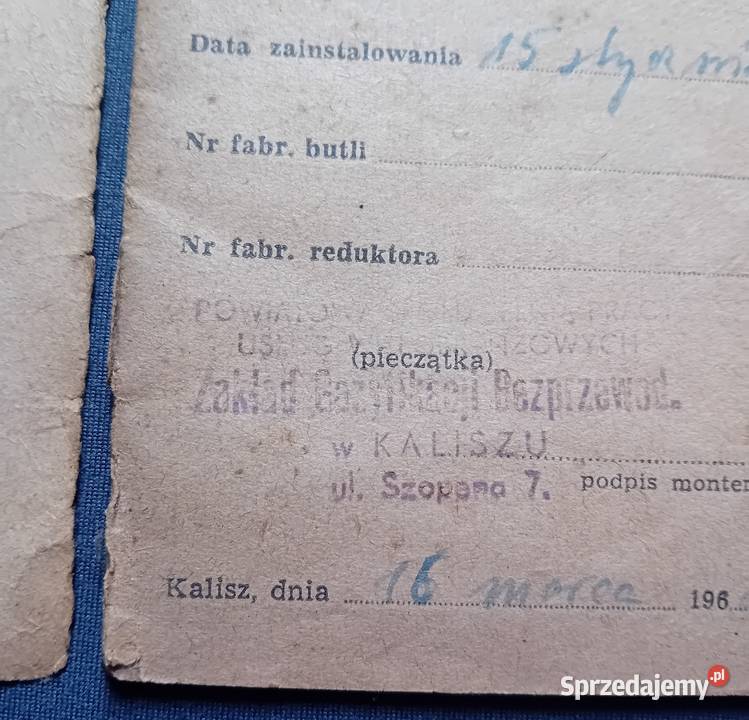 Data zainstalowania 15
Nr fabr. butli
Nr fabr. reduktora
(pieczątka)
Zakład Gazyfikacji Bezprzewod.
w KALISZU
ul. Szopena 7. podpis monter
Kalisz, dnia 16 marca 196
Sprzedajemy.pl